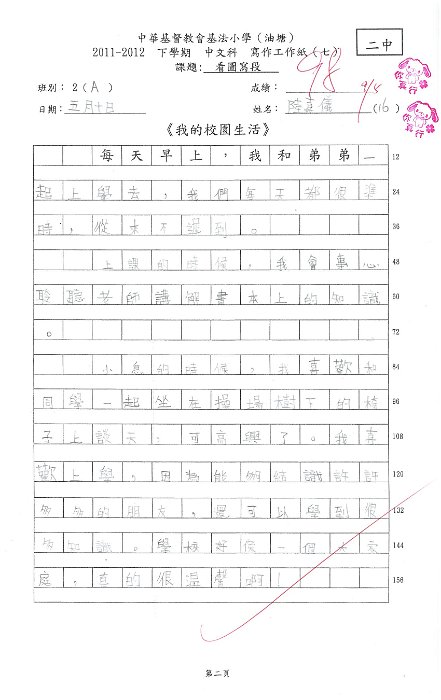 中華基督教會基法小學（油塘）
2011-2012 下學期 中文科 寫作工作紙（七）
課題：看圖寫段
二中
98
班別：2（A） 成績： 9/8
日期：五月十日 姓名： （16）
你真行
你真行
《我的校園生活》
每天早上，我和弟弟一 12
起上學去，我們每天都很準 24
時，從來不遲到。 36
上課的時候，我會專心 48
聆聽老師講解書本上的知識 60
。 72
小息的時候，我喜歡和 84
同學一起坐在操場樹下的椅 96
子上談天，可高興了。我喜 108
歡上學，因為能夠結識許許 120
多多的朋友，還可以學到很 132
多知識。學校好像一個大家 144
庭，真的很溫馨啊！ 156
第二頁